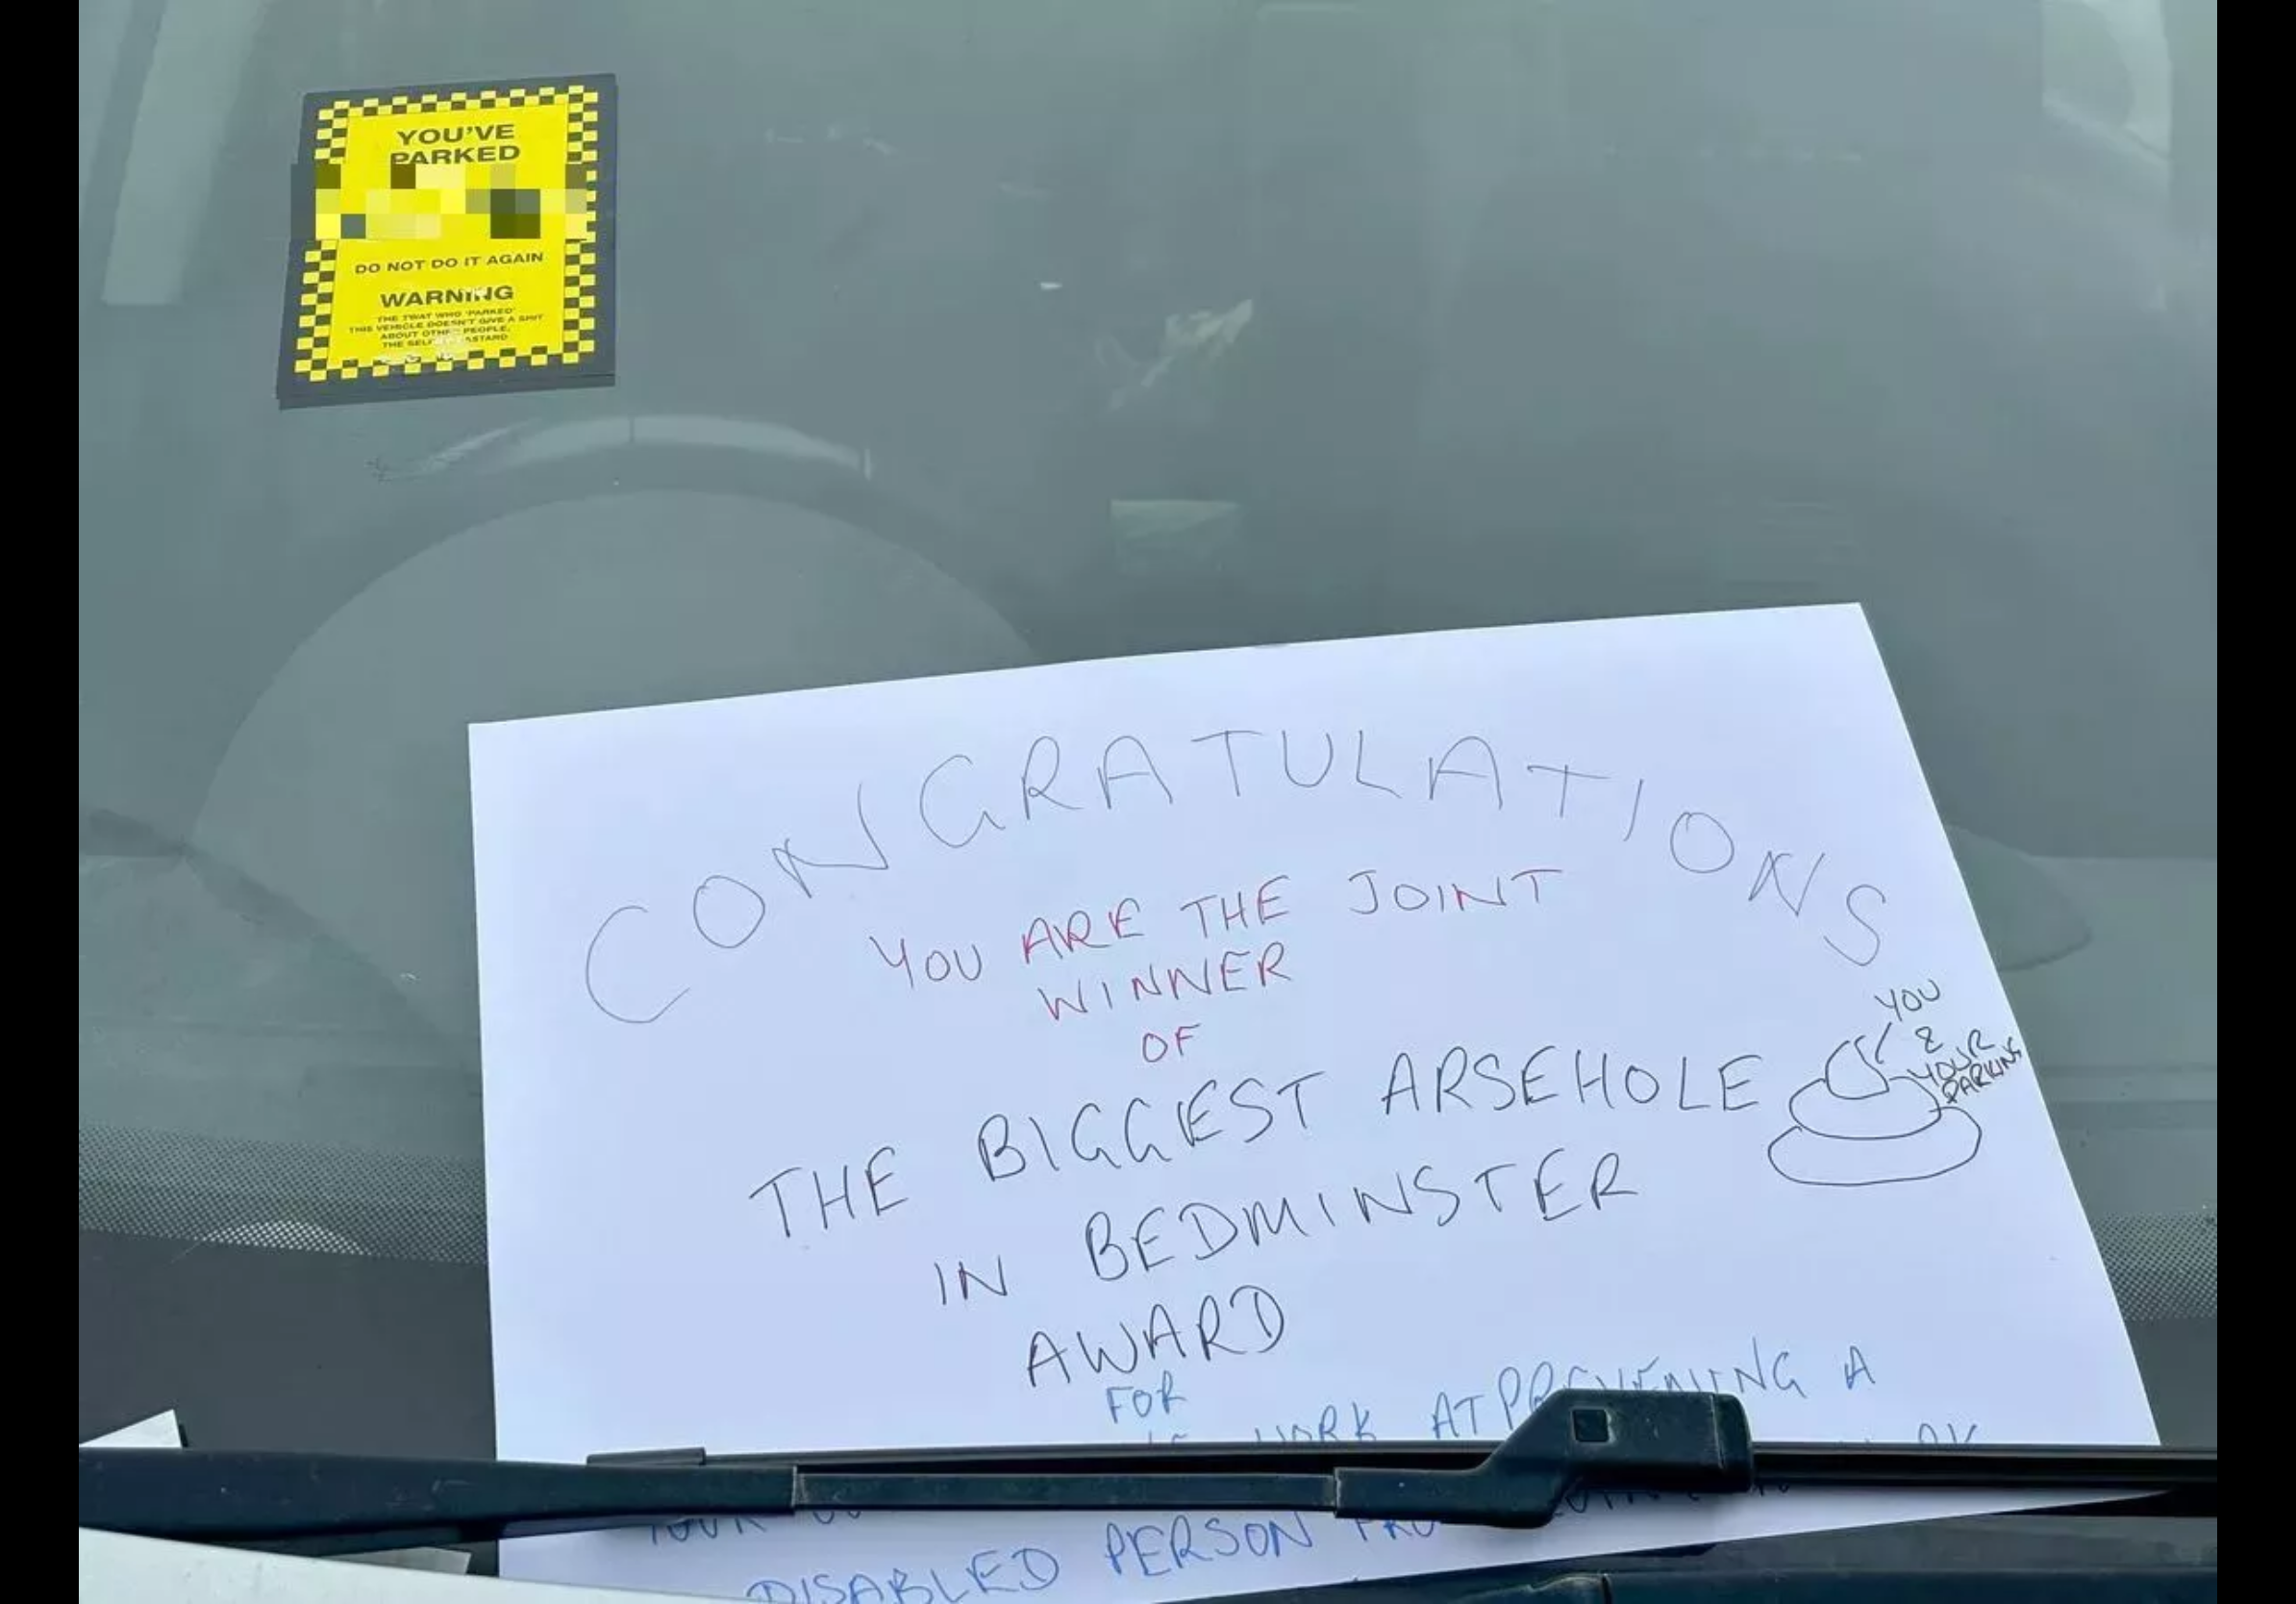 YOU'VE
PARKED
DO NOT DO IT AGAIN
WARNING
THE TWAT WHO 'PARKED'
THIS VEHICLE DOESN'T GIVE A SHIT
ABOUT OTHER PEOPLE,
THE
CONGRATULATIONS
YOU ARE THE JOINT
WINNER
OF
THE BIGGEST ARSEHOLE
IN BEDMINSTER
AWARD
YOU
&
YOUR
PARKING
FOR
WORK AT PREVENTING A
DISABLED PERSON